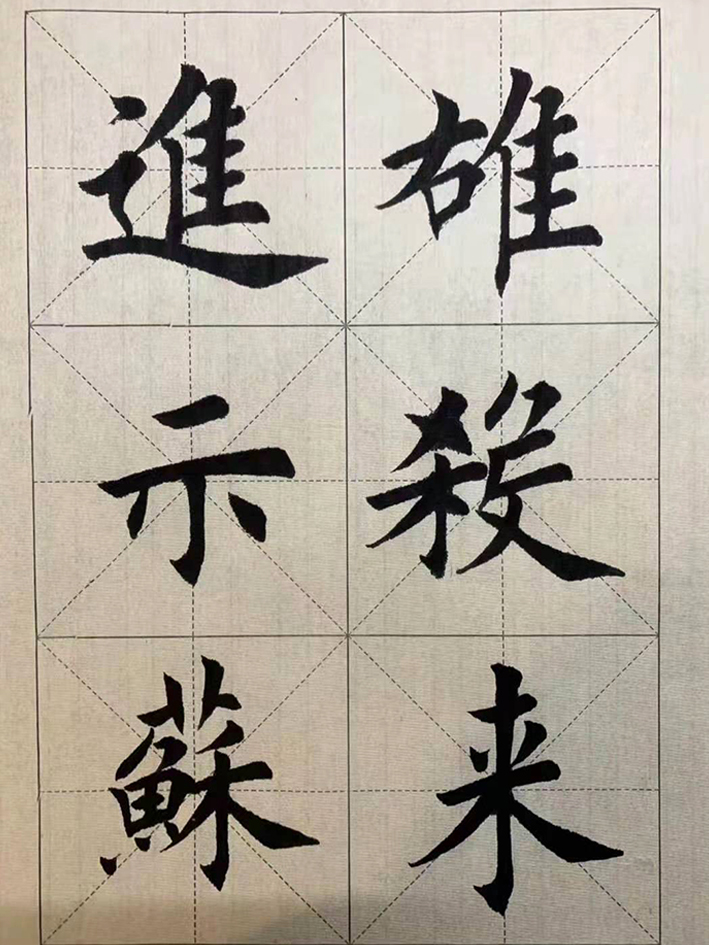 雄殺来
進示蘇